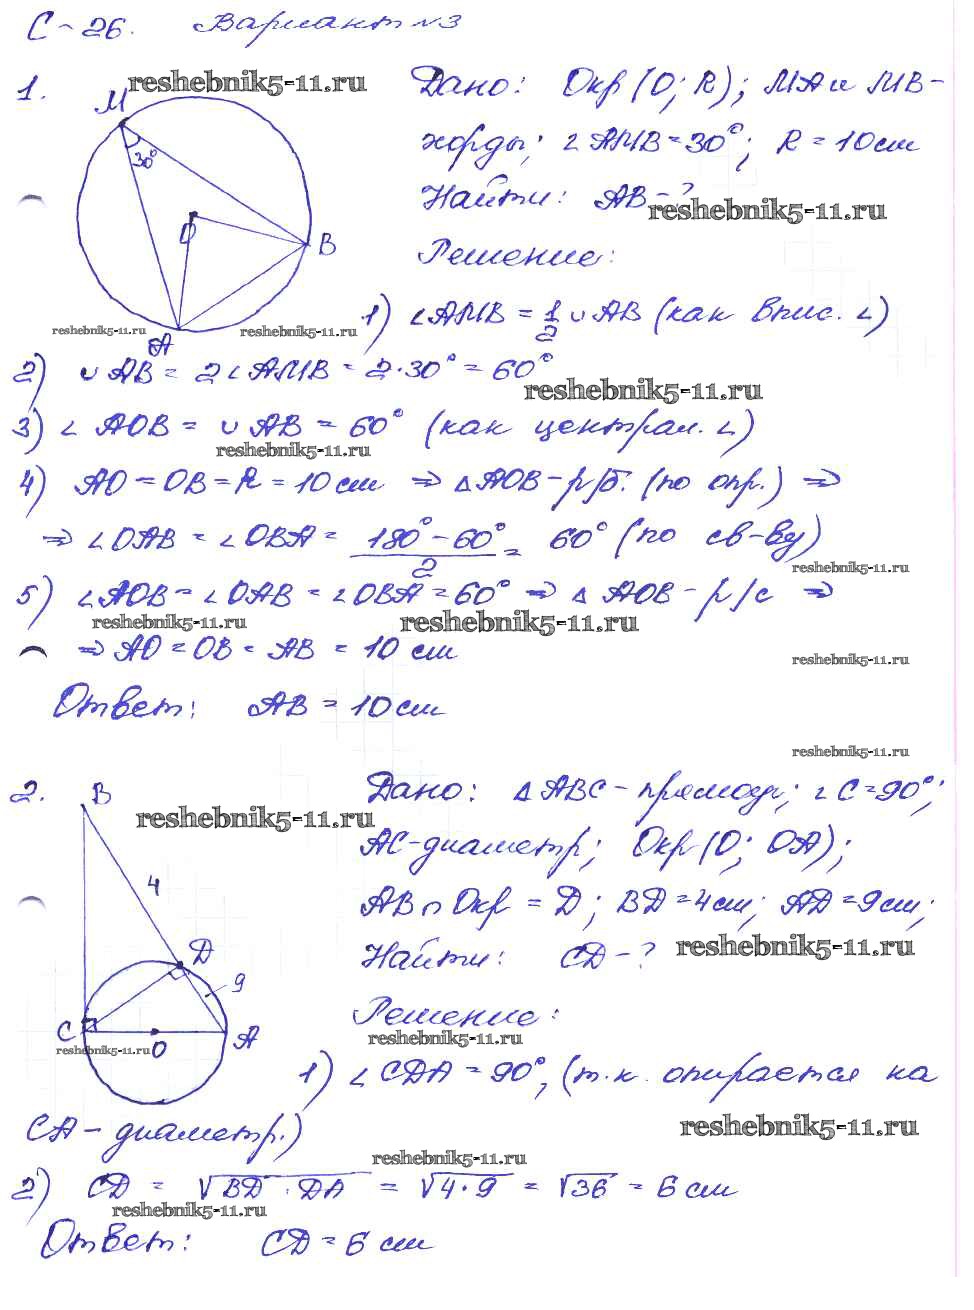 С-26. Вариант №3
1. reshebnik5-11.ru
Дано: Окр (O; R); MA и MB-
хорды; ∠AMB = 30°; R = 10 см
Найти: AB - ?
reshebnik5-11.ru
Решение:
M
30°
O
B
A
reshebnik5-11.ru reshebnik5-11.ru
1) ∠AMB = 1/2 ∪ AB (как впис. ∠)
2) ∪ AB = 2∠AMB = 2·30° = 60°
reshebnik5-11.ru
3) ∠ AOB = ∪ AB = 60° (как централ. ∠)
reshebnik5-11.ru
4) AO = OB = R = 10 см ⇒ △AOB - р/б. (по опр.) ⇒
⇒ ∠OAB = ∠OBA = (180° - 60°)/2 = 60° (по св-ву)
reshebnik5-11.ru
5) ∠AOB = ∠OAB = ∠OBA = 60° ⇒ △ AOB - р/с ⇒
reshebnik5-11.ru reshebnik5-11.ru
⇒ AO = OB = AB = 10 см
reshebnik5-11.ru
Ответ: AB = 10 см
reshebnik5-11.ru
2. Дано: △ABC - прямоуг; ∠C = 90°;
reshebnik5-11.ru
AC - диаметр; Окр (O; OA);
AB ∩ Окр = D; BD = 4 см; AD = 9 см;
Найти: CD - ?
reshebnik5-11.ru
Решение:
reshebnik5-11.ru
B
4
D
9
C
O
A
reshebnik5-11.ru
1) ∠ CDA = 90°, (т.к. опирается на
CA - диаметр.)
reshebnik5-11.ru
reshebnik5-11.ru
2) CD = √BD · DA = √4·9 = √36 = 6 см
reshebnik5-11.ru
Ответ: CD = 6 см